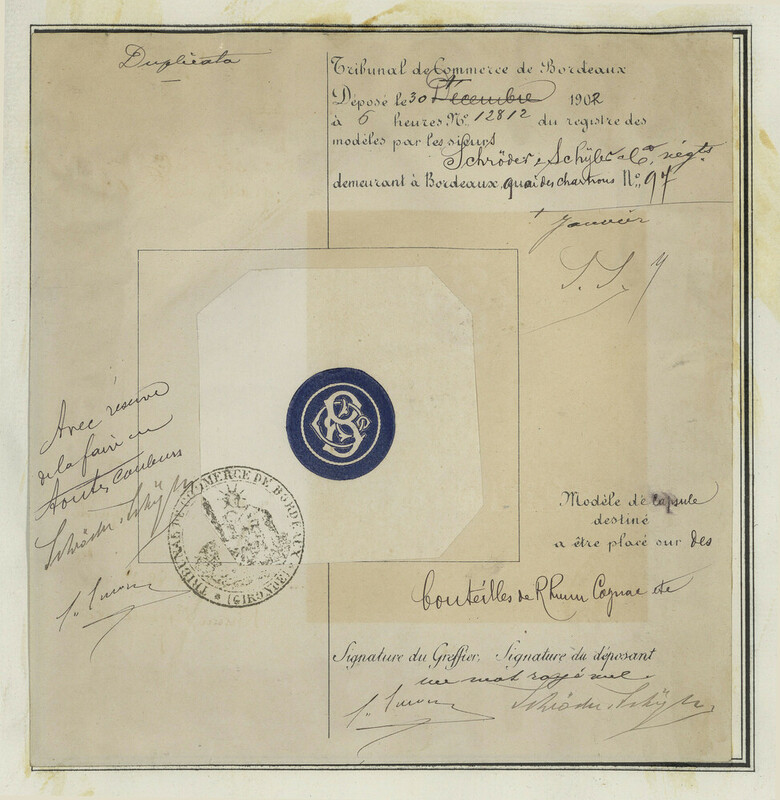 Duplicata
Tribunal de Commerce de Bordeaux
Déposé le 30 Décembre 1902
à 6 heures No. 12812 du registre des
modèles par les sieurs
Schröder & Schÿler & Co, négts.
demeurant à Bordeaux, quai des chartrons No. 97
Janvier
S. S. y
Avec réserve
de la faire en
toutes couleurs
Schröder & Schÿler
TRIBUNAL DE COMMERCE DE BORDEAUX
(GIRONDE)
Modèle de capsule
destiné
a être placé sur des
bouteilles de Rhum Cognac etc
Signature du Greffier, Signature du déposant
un mot rayé nul.
Schröder & Schÿler